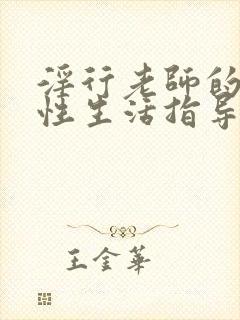 淫行老師的
性生活指导
王金華